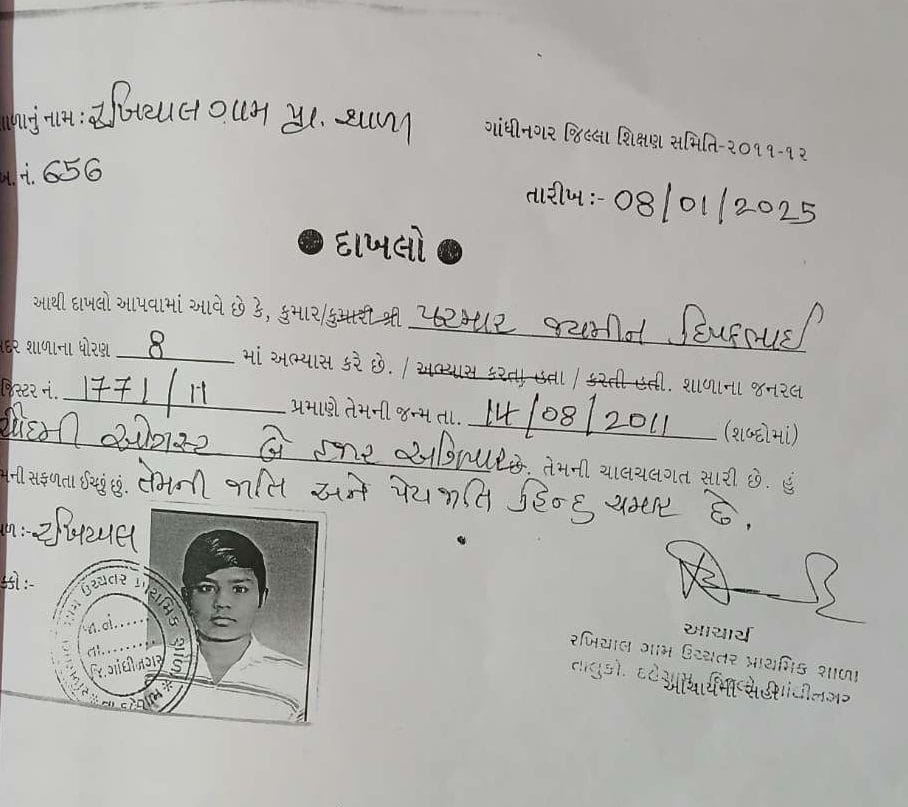 શાળાનું નામ : રખિયાલ ગામ પ્રા. શાળા
ગાંધીનગર જિલ્લા શિક્ષણ સમિતિ-૨૦૧૧-૧૨
નં. 656
તારીખ :- 08/01/2025
● દાખલો ●
આથી દાખલો આપવામાં આવે છે કે, કુમાર/કુમારી શ્રી પરમાર જયમીન દિપકભાઈ
સદર શાળાના ધોરણ 8 માં અભ્યાસ કરે છે. / અભ્યાસ કરતા હતા / કરતી હતી. શાળાના જનરલ
રજિસ્ટર નં. 1771/11 પ્રમાણે તેમની જન્મ તા. 14/08/2011 (શબ્દોમાં)
ચૌદમી ઓગસ્ટ બે હજાર અગિયાર છે. તેમની ચાલચલગત સારી છે. હું
તેમની સફળતા ઈચ્છું છું. તેમની જાતિ અને પેટાજાતિ હિન્દુ ચમાર છે.
સ્થળ :- રખિયાલ
સિક્કો :-
ગામ ઉચ્ચતર પ્રાથમિક શાળા
જા.નં......
તા.........
જિ.ગાંધીનગર
આચાર્ય
રખિયાલ ગામ ઉચ્ચતર પ્રાથમિક શાળા
તાલુકો. દહેગામ ગાંધીનગર
આચાર્યની સહી